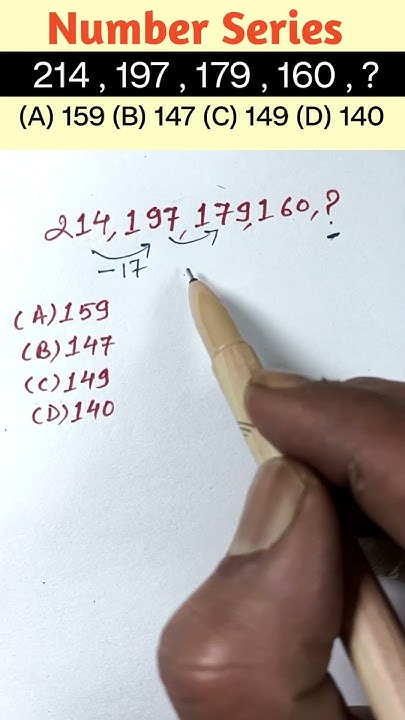 Number Series
214 , 197 , 179 , 160 , ?
(A) 159 (B) 147 (C) 149 (D) 140
214, 197, 179, 160, ?
-17
(A) 159
(B) 147
(C) 149
(D) 140